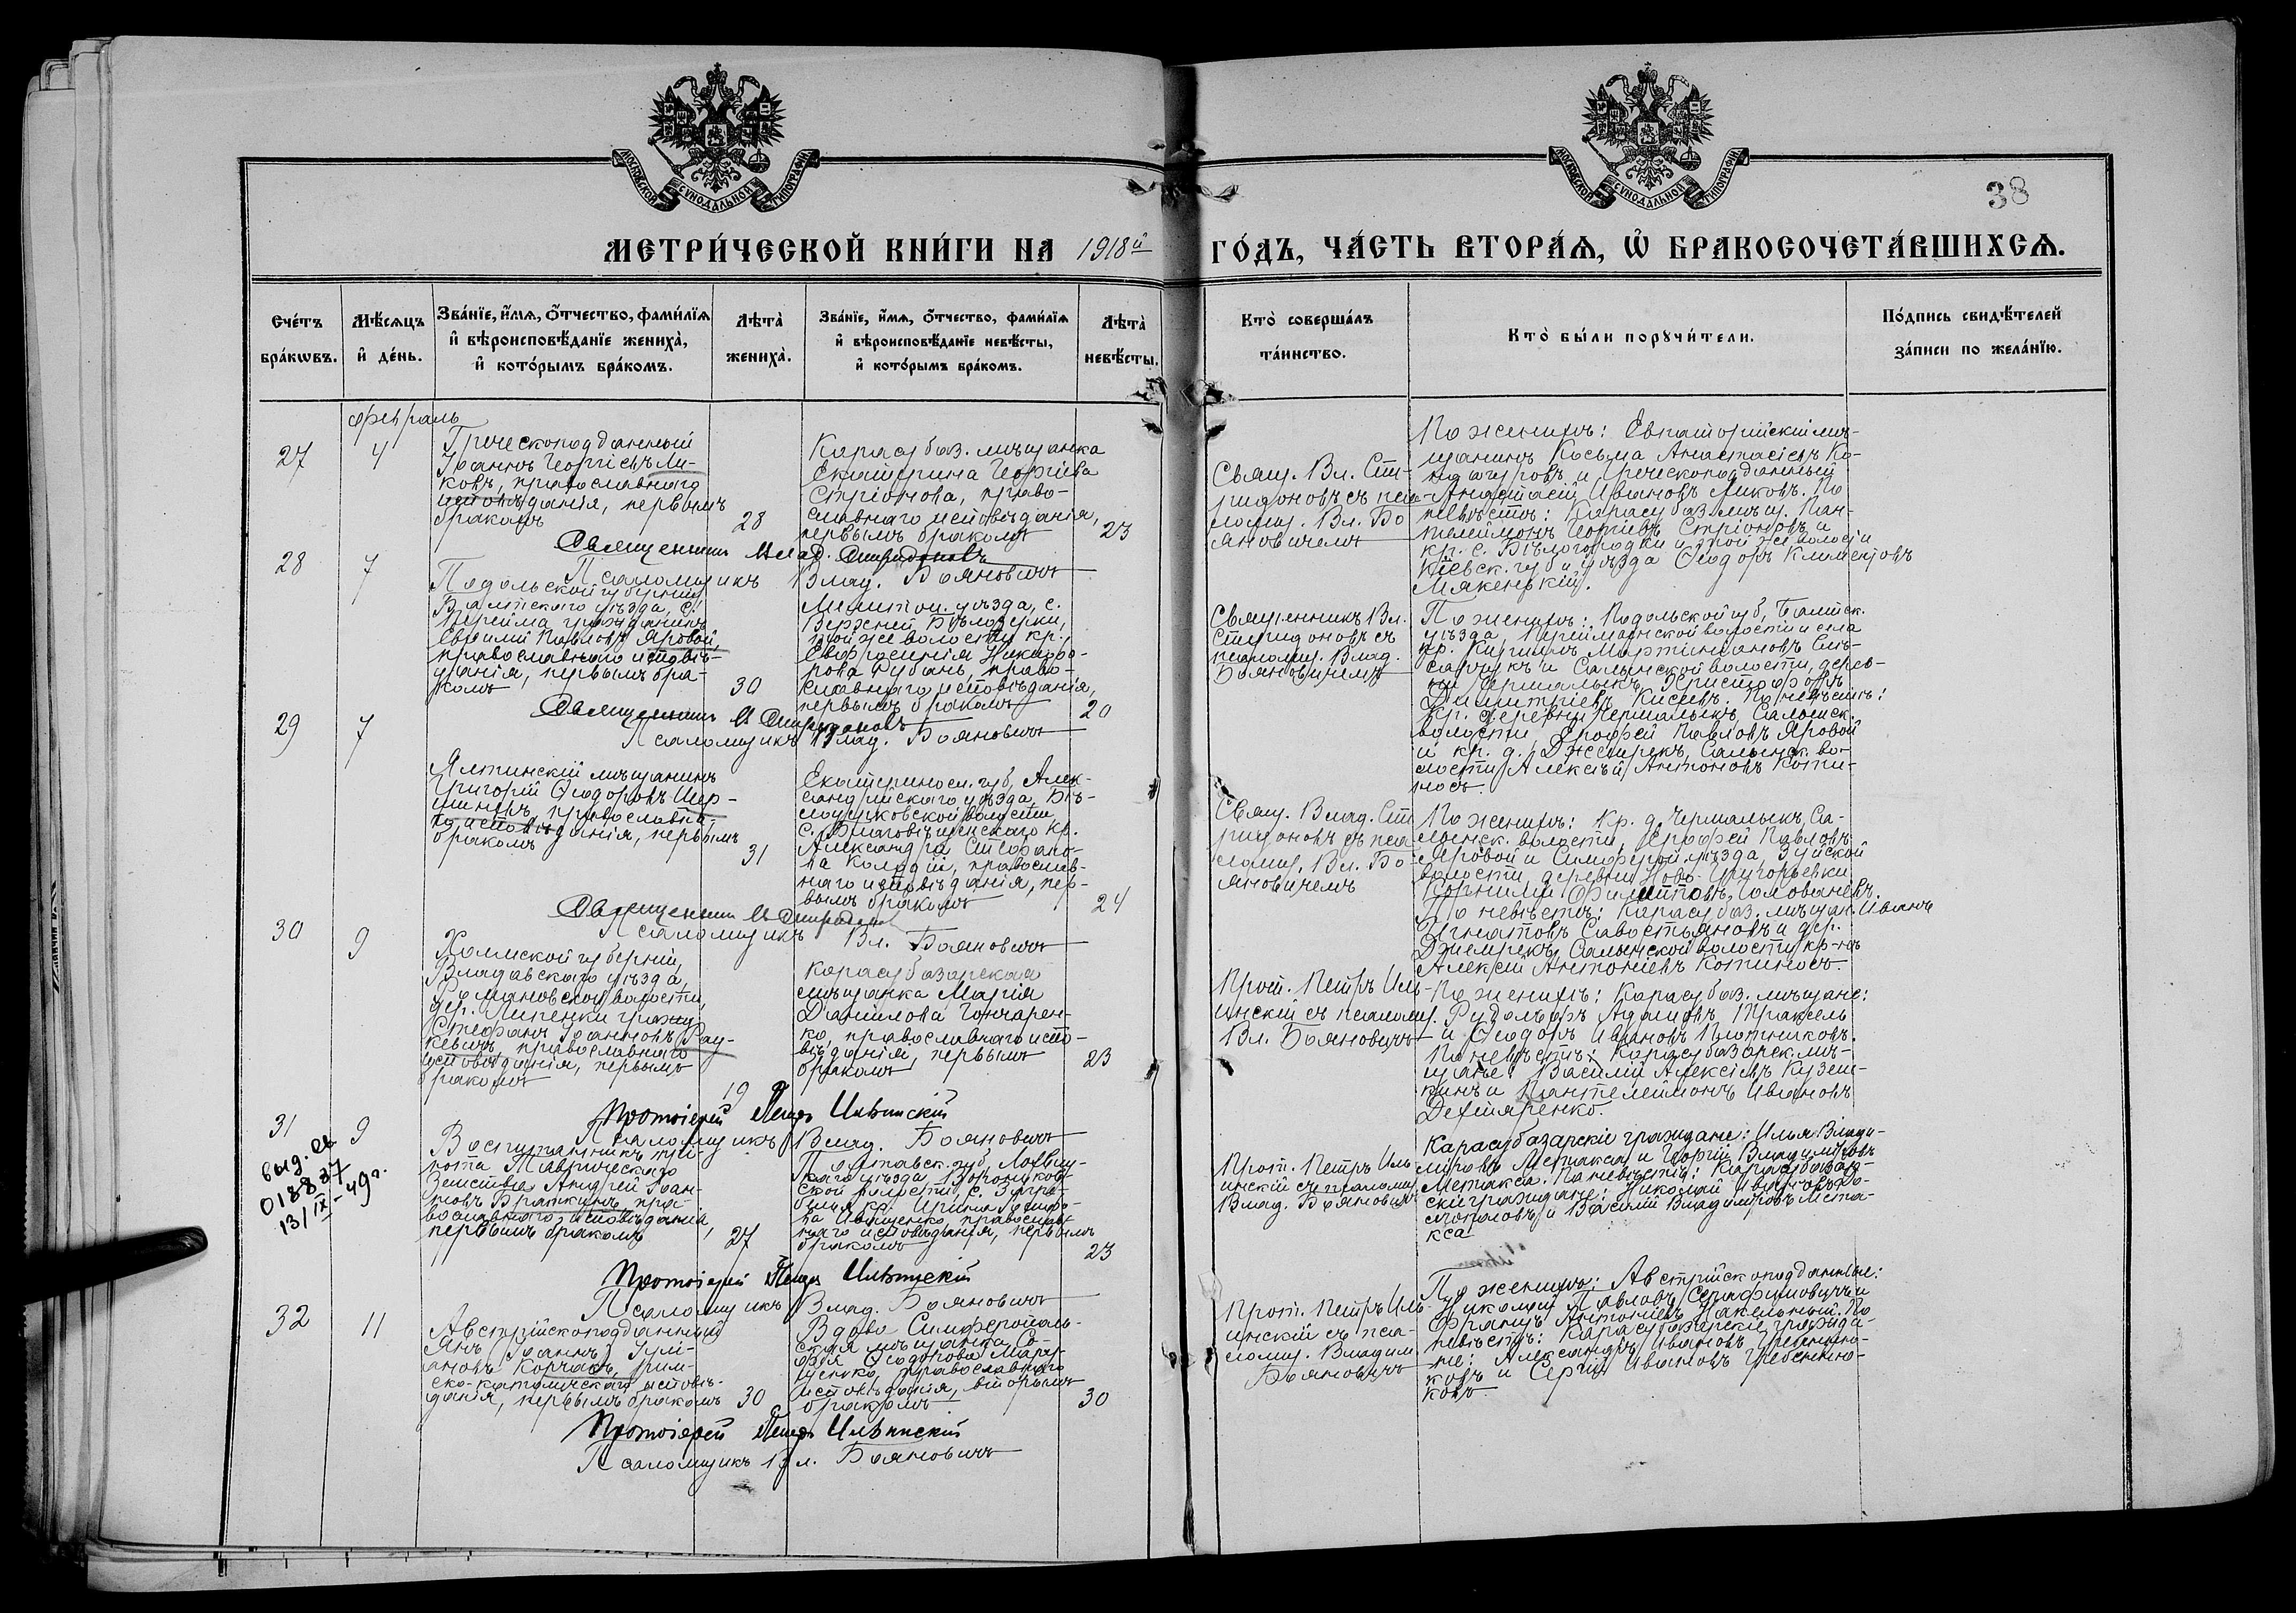 МОСКОВСКОЙ СѴНОДАЛЬНОЙ ТИПОГРАФІИ
МОСКОВСКОЙ СѴНОДАЛЬНОЙ ТИПОГРАФІИ
38
МЕТРИ́ЧЕСКОЙ КНИ́ГИ НА 1918й ГО́ДЪ, ЧА́СТЬ ВТОРА́Ѧ, Ѽ БРАКОСОЧЕТА́ВШИХСѦ.
Сче́тъ бра́кѡвъ.
Мѣ́сѧцъ и҆ де́нь.
Зва́нїе, и҆́мѧ, ѻ҆́тчество, фами́лїѧ и҆ вѣроисповѣ́данїе жениха̀, и҆ кото́рымъ бра́комъ.
Лѣта̀ жениха̀.
Зва́нїе, и҆́мѧ, ѻ҆́тчество, фами́лїѧ и҆ вѣроисповѣ́данїе невѣ́сты, и҆ кото́рымъ бра́комъ.
Лѣта̀ невѣ́сты.
Кто̀ соверша́лъ та́инство.
Кто̀ бы́ли порꙋчи́тели.
По́дпись свидѣ́телей за́писи по жела́нїю.
февраль
27
4
Греческоподданный
Іоаннъ Георгіевъ Ли-
ковъ, православнаго
исповѣданія, первымъ
бракомъ
28
Карасубаз. мѣщанка
Екатерина Георгіева
Стріонова, право-
славнаго исповѣданія,
первымъ бракомъ
23
Свящ. Вл. Спи-
ридоновъ съ пса-
ломщ. Вл. Бо-
яновичемъ
По женихѣ: Евпаторійскій мѣ-
щанинъ Косьма Анастасіевъ Ко-
и Греческоподданный
Анастасій Ивановъ Ликовъ. По
невѣстѣ: Карасубаз. мѣщ. Пан-
телеймонъ Георгіевъ Стріоновъ и
кр. с. Бѣлогородки и этой же волости
Кіевск. губ. и уѣзда Ѳеодоръ Климентовъ
Священникъ Влад. Спиридоновъ
Псаломщикъ Влад. Бояновичъ
28
7
Подольской губерніи
Балтскаго уѣзда, с.
Перейма гражданинъ
Павловъ Яровой,
православнаго исповѣ-
данія, первымъ бра-
комъ
30
Мелитоп. уѣзда, с.
Верхней Бѣлозерки,
той же волости кр.
Евфросинія Никифо-
рова Губань, право-
славнаго исповѣданія,
первымъ бракомъ
20
Священникъ Вл.
Спиридоновъ съ
псаломщ. Влад.
Бояновичемъ
По женихѣ: Подольской губ., Балтск.
уѣзда, волости и села
кр. Кириллъ Мартиніановъ Слѣ-
сарчукъ и Салынской волости, дерев-
ни Чермалыкъ Христофоръ
Димитріевъ Кисеевъ. По невѣстѣ:
кр. деревни Чермалыкъ, Салынск.
волости, Ерофей Павловъ Яровой
и кр. д. Джемрекъ, Салынск. во-
лости Алексѣй Антоновъ Коти-
носъ.
Священникъ В Спиридоновъ
Псаломщикъ Влад. Бояновичъ
29
7
Ялтинскій мѣщанинъ
Григорій Ѳеодоровъ Шер-
православна-
го исповѣданія, первымъ
бракомъ
31
Екатериносл. губ., Алек-
сандрійскаго уѣзда,
волости
с. Благовѣщенскаго кр.
Александра Стефано-
ва Колодій, православ-
наго исповѣданія, пер-
вымъ бракомъ
24
Свящ. Влад. Спи-
ридоновъ съ пса-
ломщ. Вл. Бо-
яновичемъ
По женихѣ: Кр. д. Чермалыкъ, Са-
лынск. волости, Ерофей Павловъ
Яровой и Симфероп. уѣзда, Зуйской
волости, деревни Ново-Григорьевки
Корнилій Филипповъ Головачевъ.
По невѣстѣ: Карасубаз. мѣщан. Иванъ
Игнатовъ Савостьяновъ и дер.
Джемрекъ, Салынской волости кр-нъ
Алексій Антоніевъ Котиносъ.
Священникъ В Спиридонов
Псаломщикъ Вл. Бояновичъ
30
9
Холмской губерніи,
Владавскаго уѣзда,
Романовской волости,
дер. Липенки гражд.
Стефанъ Іоанновъ Рау-
кевичъ, православнаго
исповѣданія, первымъ
бракомъ
19
Карасубазарская
мѣщанка Марія
Даніилова Гончарен-
ко, православнаго испо-
вѣданія, первымъ
бракомъ
23
Прот. Петръ Иль-
инскій съ псаломщ.
Вл. Бояновичъ
По женихѣ: Карасубаз. мѣщане:
Рудольфъ Адамовъ Праксель
и Ѳеодоръ Ивановъ Плотниковъ.
По невѣстѣ: Карасубазарск. мѣ-
щане: Василій Алексіевъ Кузем-
кинъ и Пантелеймонъ Ивановъ
Дегтяренко.
Протоіерей Петръ Ильинскій
Псаломщикъ Влад. Бояновичъ
31
9
выд. св
018837
13/IX-49г.
Воспитанникъ прі-
юта Таврическаго
Земства Андрей Іоан-
новъ Браткинъ, пра-
вославнаго исповѣданія,
первымъ бракомъ
27
Полтавск. губ., Лохвиц-
каго уѣзда, Воронцов-
ской волости, с.
кр. Ирина
ва Иващенко, православ-
наго исповѣданія, первымъ
бракомъ
23
Прот. Петръ Иль-
инскій съ псаломщ.
Влад. Бояновичъ
Карасубазарскіе граждане: Илья Влади-
міровъ Метакса и Георгій Владиміровъ
Метакса. По невѣстѣ: Карасубазар-
скіе граждане: Николай Ивановъ
и Василій Владиміровъ Мета-
кса
Протоіерей Петръ Ильинскій
Псаломщикъ Влад. Бояновичъ
32
11
Австрійскоподданный
Янъ (Іоаннъ) Юлі-
ановъ Корчакъ, рим-
ско-католическаго исповѣ-
данія, первымъ бракомъ
30
Вдова Симферополь-
ская мѣщанка Со-
фія Ѳеодорова Мару-
щенко, православнаго
исповѣданія, вторымъ
бракомъ
30
Прот. Петръ Иль-
инскій съ пса-
ломщ. Владим.
Бояновичъ
По женихѣ: Австрійскоподданные:
Николай Павловъ Серафимовичъ и
Францъ Антоніевъ По
невѣстѣ: Карасубазарскіе гражда-
не: Александръ Ивановъ Гребенни-
ковъ и Сергій Ивановъ Гребенни-
ковъ
Протоіерей Петръ Ильинскій
Псаломщикъ Вл. Бояновичъ